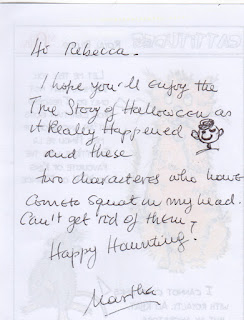 Hi Rebecca.
I hope you'll Enjoy the
True Story of Halloween as
it Really Happened
and these
two characters who have
come to squat in my head.
Can't get rid of them,
Happy Haunting.
Martha